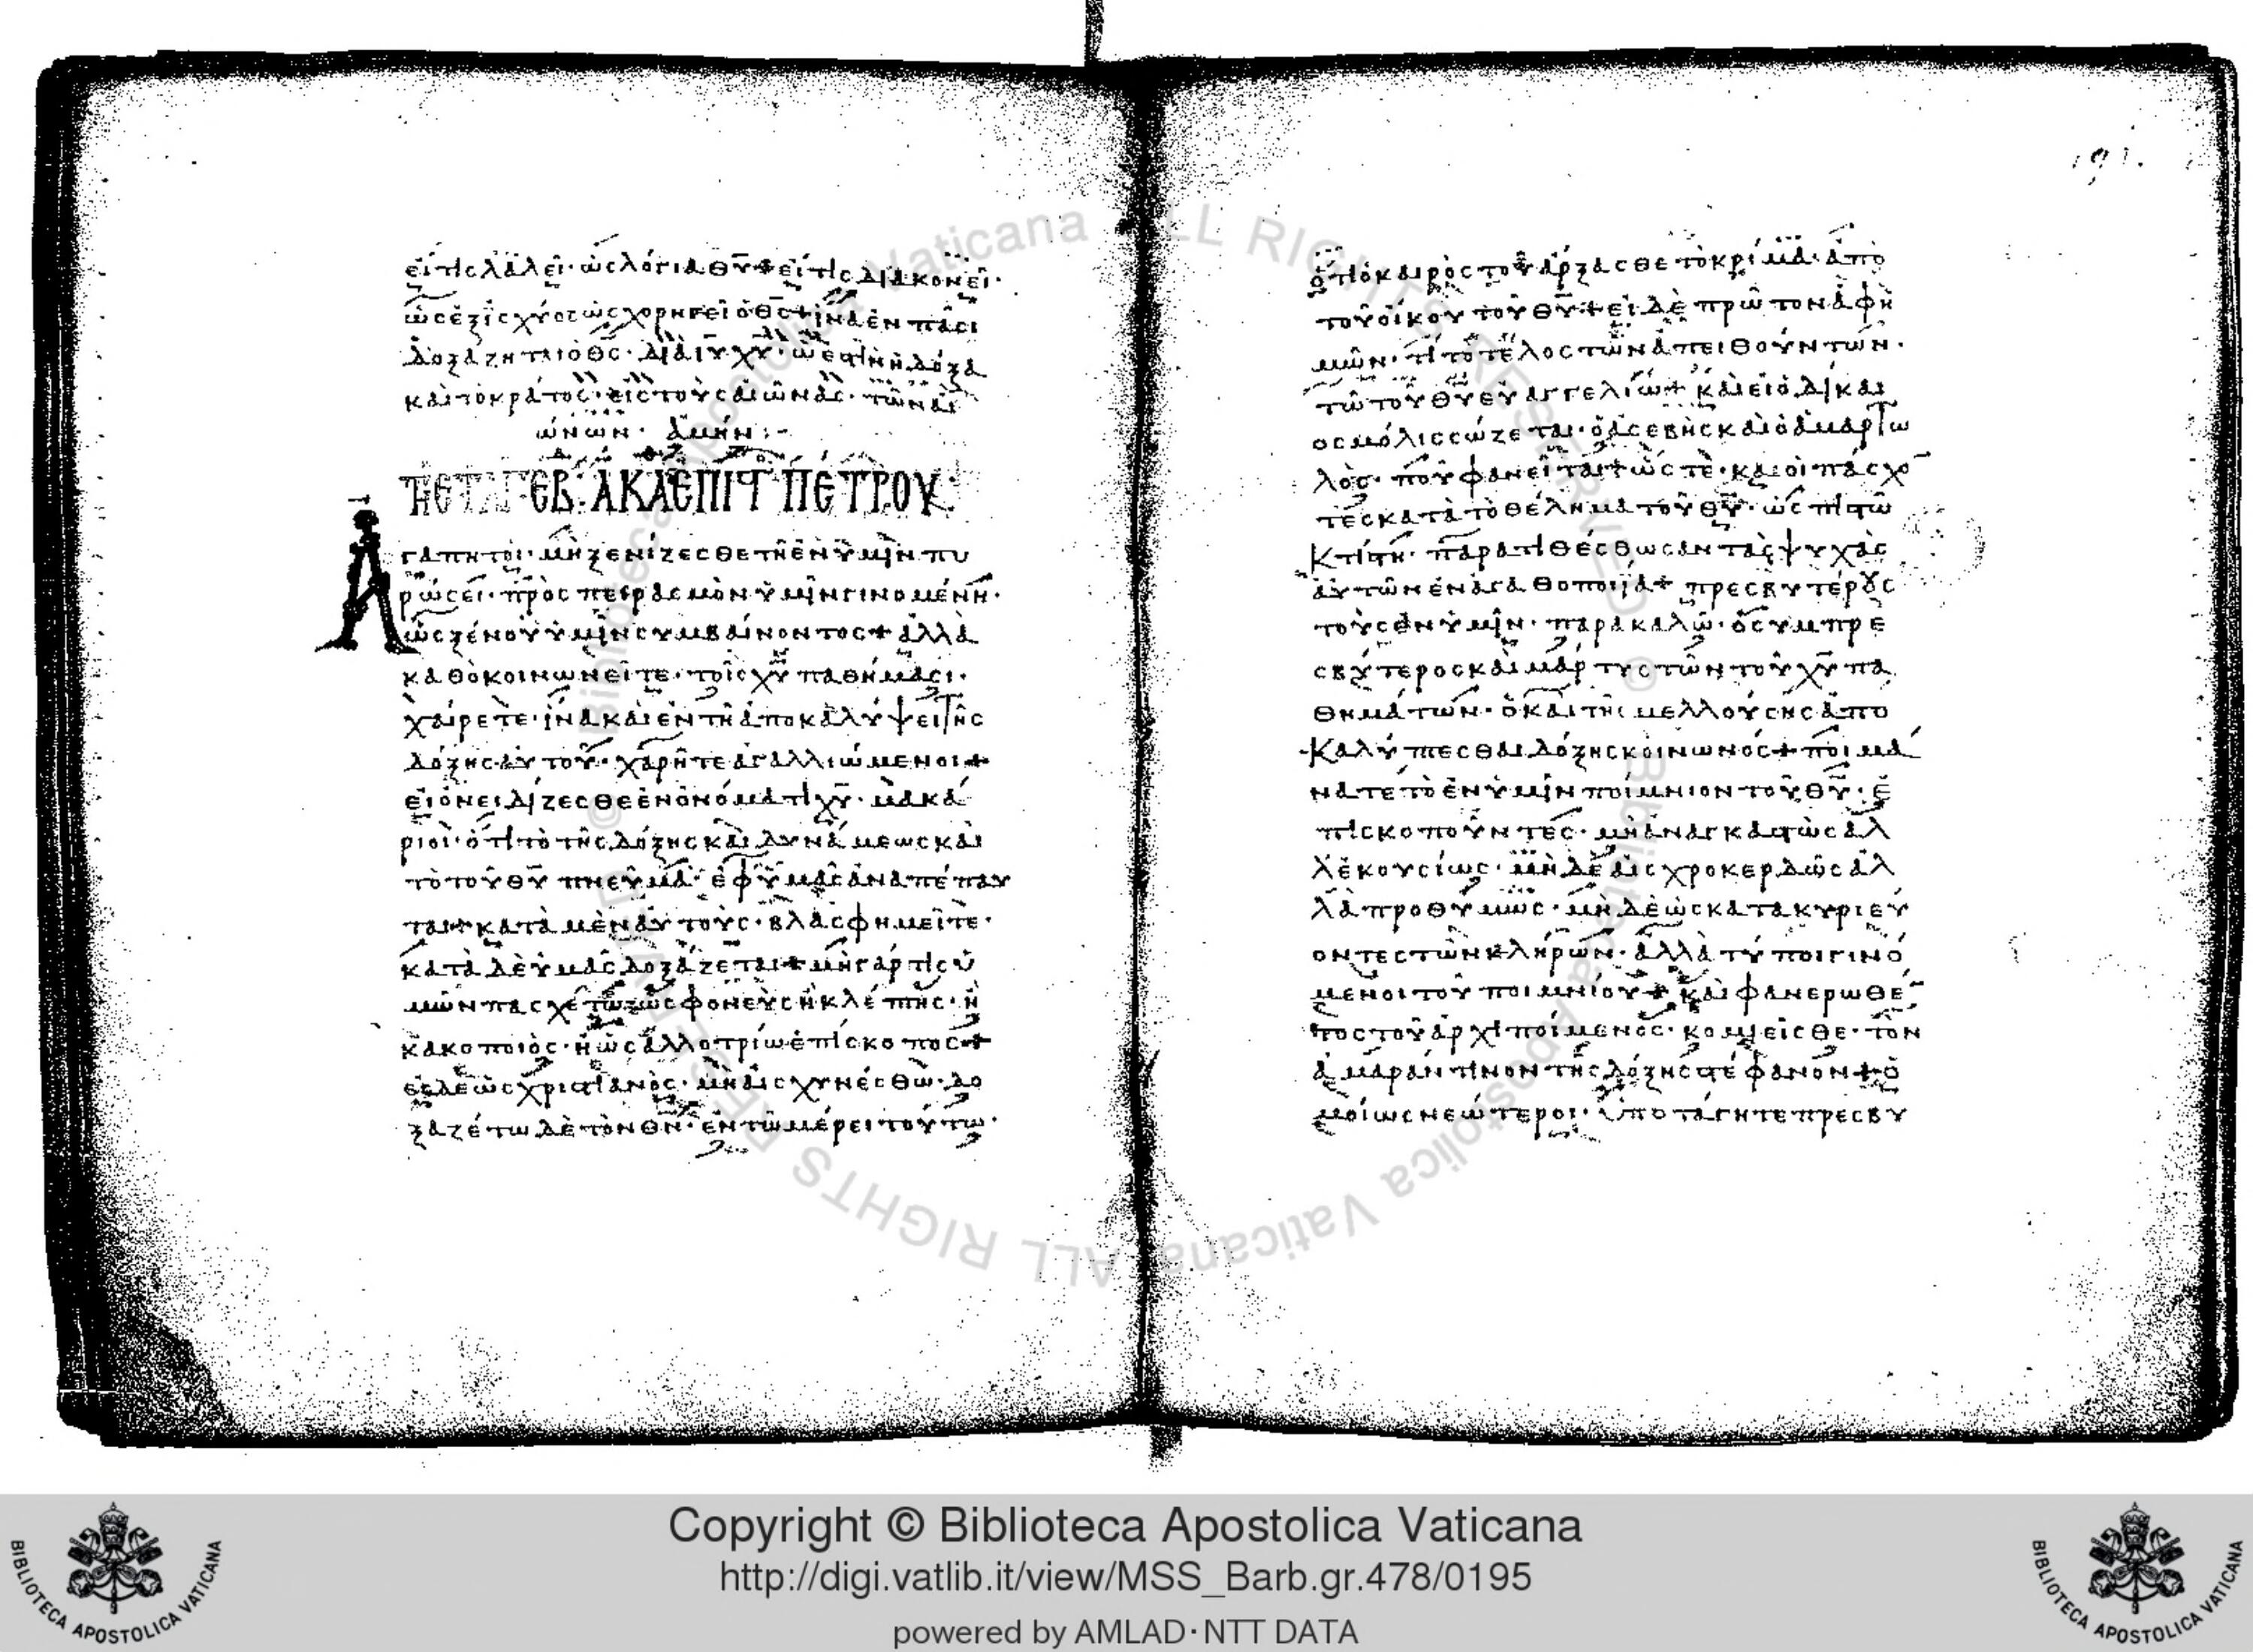 εἴ τις λαλεῖ· ὡς λόγια θ̅υ̅ + εἴ τις διακονεῖ·
ὡς ἐξ ἰσχύος ὡς χορηγεῖ ὁ θ̅ς̅ + ἵνα ἐν πᾶσι
δοξάζηται ὁ θ̅ς̅· διὰ ι̅υ̅ χ̅υ̅· ὧ ἐστὶν ἡ δόξα
καὶ τὸ κράτος· εἰς τοὺς αἰῶνας· τῶν αἰ
ώνων· ἀμήν :-
ΤΗ ΕΒ. Α ΚΑ ΕΠΙΣΤ ΠΕΤΡΟΥ·
Ἀγαπητοι· μὴ ξενίζεσθε τῆ ἐν ὑμῖν πυ
ρώσει· πρὸς πειρασμὸν ὑμῖν γινομένη·
ὡς ξένου ὑμῖν συμβαίνοντος + ἀλλὰ
καθὸ κοινωνεῖτε· τοῖς χ̅υ̅ παθήμασι·
χαίρετε· ἵνα καὶ ἐν τῆ ἀποκαλύψει τῆς
δόξης αὐτοῦ· χαρῆτε ἀγαλλιώμενοι +
εἰ ὀνειδίζεσθε ἐν ὀνόματι χ̅υ̅· μακά
ριοι· ὅτι τὸ τῆς δόξης καὶ δυνάμεως καὶ
τὸ τοῦ θ̅υ̅ πνεῦμα· ἐφ ὑμᾶς ἀναπέπαυ
ται + κατὰ μὲν αὐτοὺς· βλασφημεῖτε·
κατὰ δὲ ὑμᾶς δοξάζεται + μὴ γάρ τις ὑ
μῶν πασχέτω ὡς φονεὺς ἢ κλέπτης· ἢ
κακοποιὸς· ἢ ὡς ἀλλοτρίω ἐπίσκοπος +
εἰ δὲ ὡς χριστιανὸς· μὴ αἰσχυνέσθω· δο
ξαζέτω δὲ τὸν θ̅ν̅· ἐν τῶ μέρει τούτω·
191.
ὅτι ὁ καιρὸς τοῦ ἄρξασθε τὸ κρίμα· ἀπὸ
τοῦ οἴκου τοῦ θ̅υ̅ + εἰ δὲ πρῶτον ἀφ ἡ
μῶν· τί τὸ τέλος τῶν ἀπειθούντων·
τῶ τοῦ θ̅υ̅ εὐαγγελίω + καὶ εἰ ὁ δίκαι
ος μόλις σώζεται· ὁ ἀσεβὴς καὶ ὁ ἁμαρτω
λὸς· ποῦ φανεῖται + ὥστε· καὶ οἱ πάσχο̅
τες κατὰ τὸ θέλημα τοῦ θ̅υ̅· ὡς πιστῶ
κτίστη· παρατιθέσθωσαν τὰς ψυχὰς
αὐτῶν ἐν ἀγαθοποιΐα + πρεσβυτέρους
τοὺς ἐν ὑμῖν· παρακαλῶ· ὁ συμπρε
σβύτερος καὶ μάρτυς τῶν τοῦ χ̅υ̅ πα
θημάτων· ὁ καὶ τῆς μελλούσης ἀπο
καλύπτεσθαι δόξης κοινωνός + ποιμά
νατε τὸ ἐν ὑμῖν ποίμνιον τοῦ θ̅υ̅· ἐ
πισκοποῦντες· μὴ ἀναγκαστῶς ἀλ
λ ἑκουσίως· μὴ δὲ αἰσχροκερδῶς ἀλ
λὰ προθύμως· μὴ δὲ ὡς κατακυριεύ
οντες τῶν κλήρων· ἀλλὰ τύποι γινό
μενοι τοῦ ποιμνίου + καὶ φανερωθέ̅
τος τοῦ ἀρχιποίμενος· κομιεῖσθε· τὸν
ἀμαράντινον τῆς δόξης στέφανον + ὁ
μοίως νεώτεροι· ὑποτάγητε πρεσβυ
Copyright © Biblioteca Apostolica Vaticana
http://digi.vatlib.it/view/MSS_Barb.gr.478/0195
powered by AMLAD·NTT DATA
BIBLIOTECA APOSTOLICA VATICANA
BIBLIOTECA APOSTOLICA VATICANA